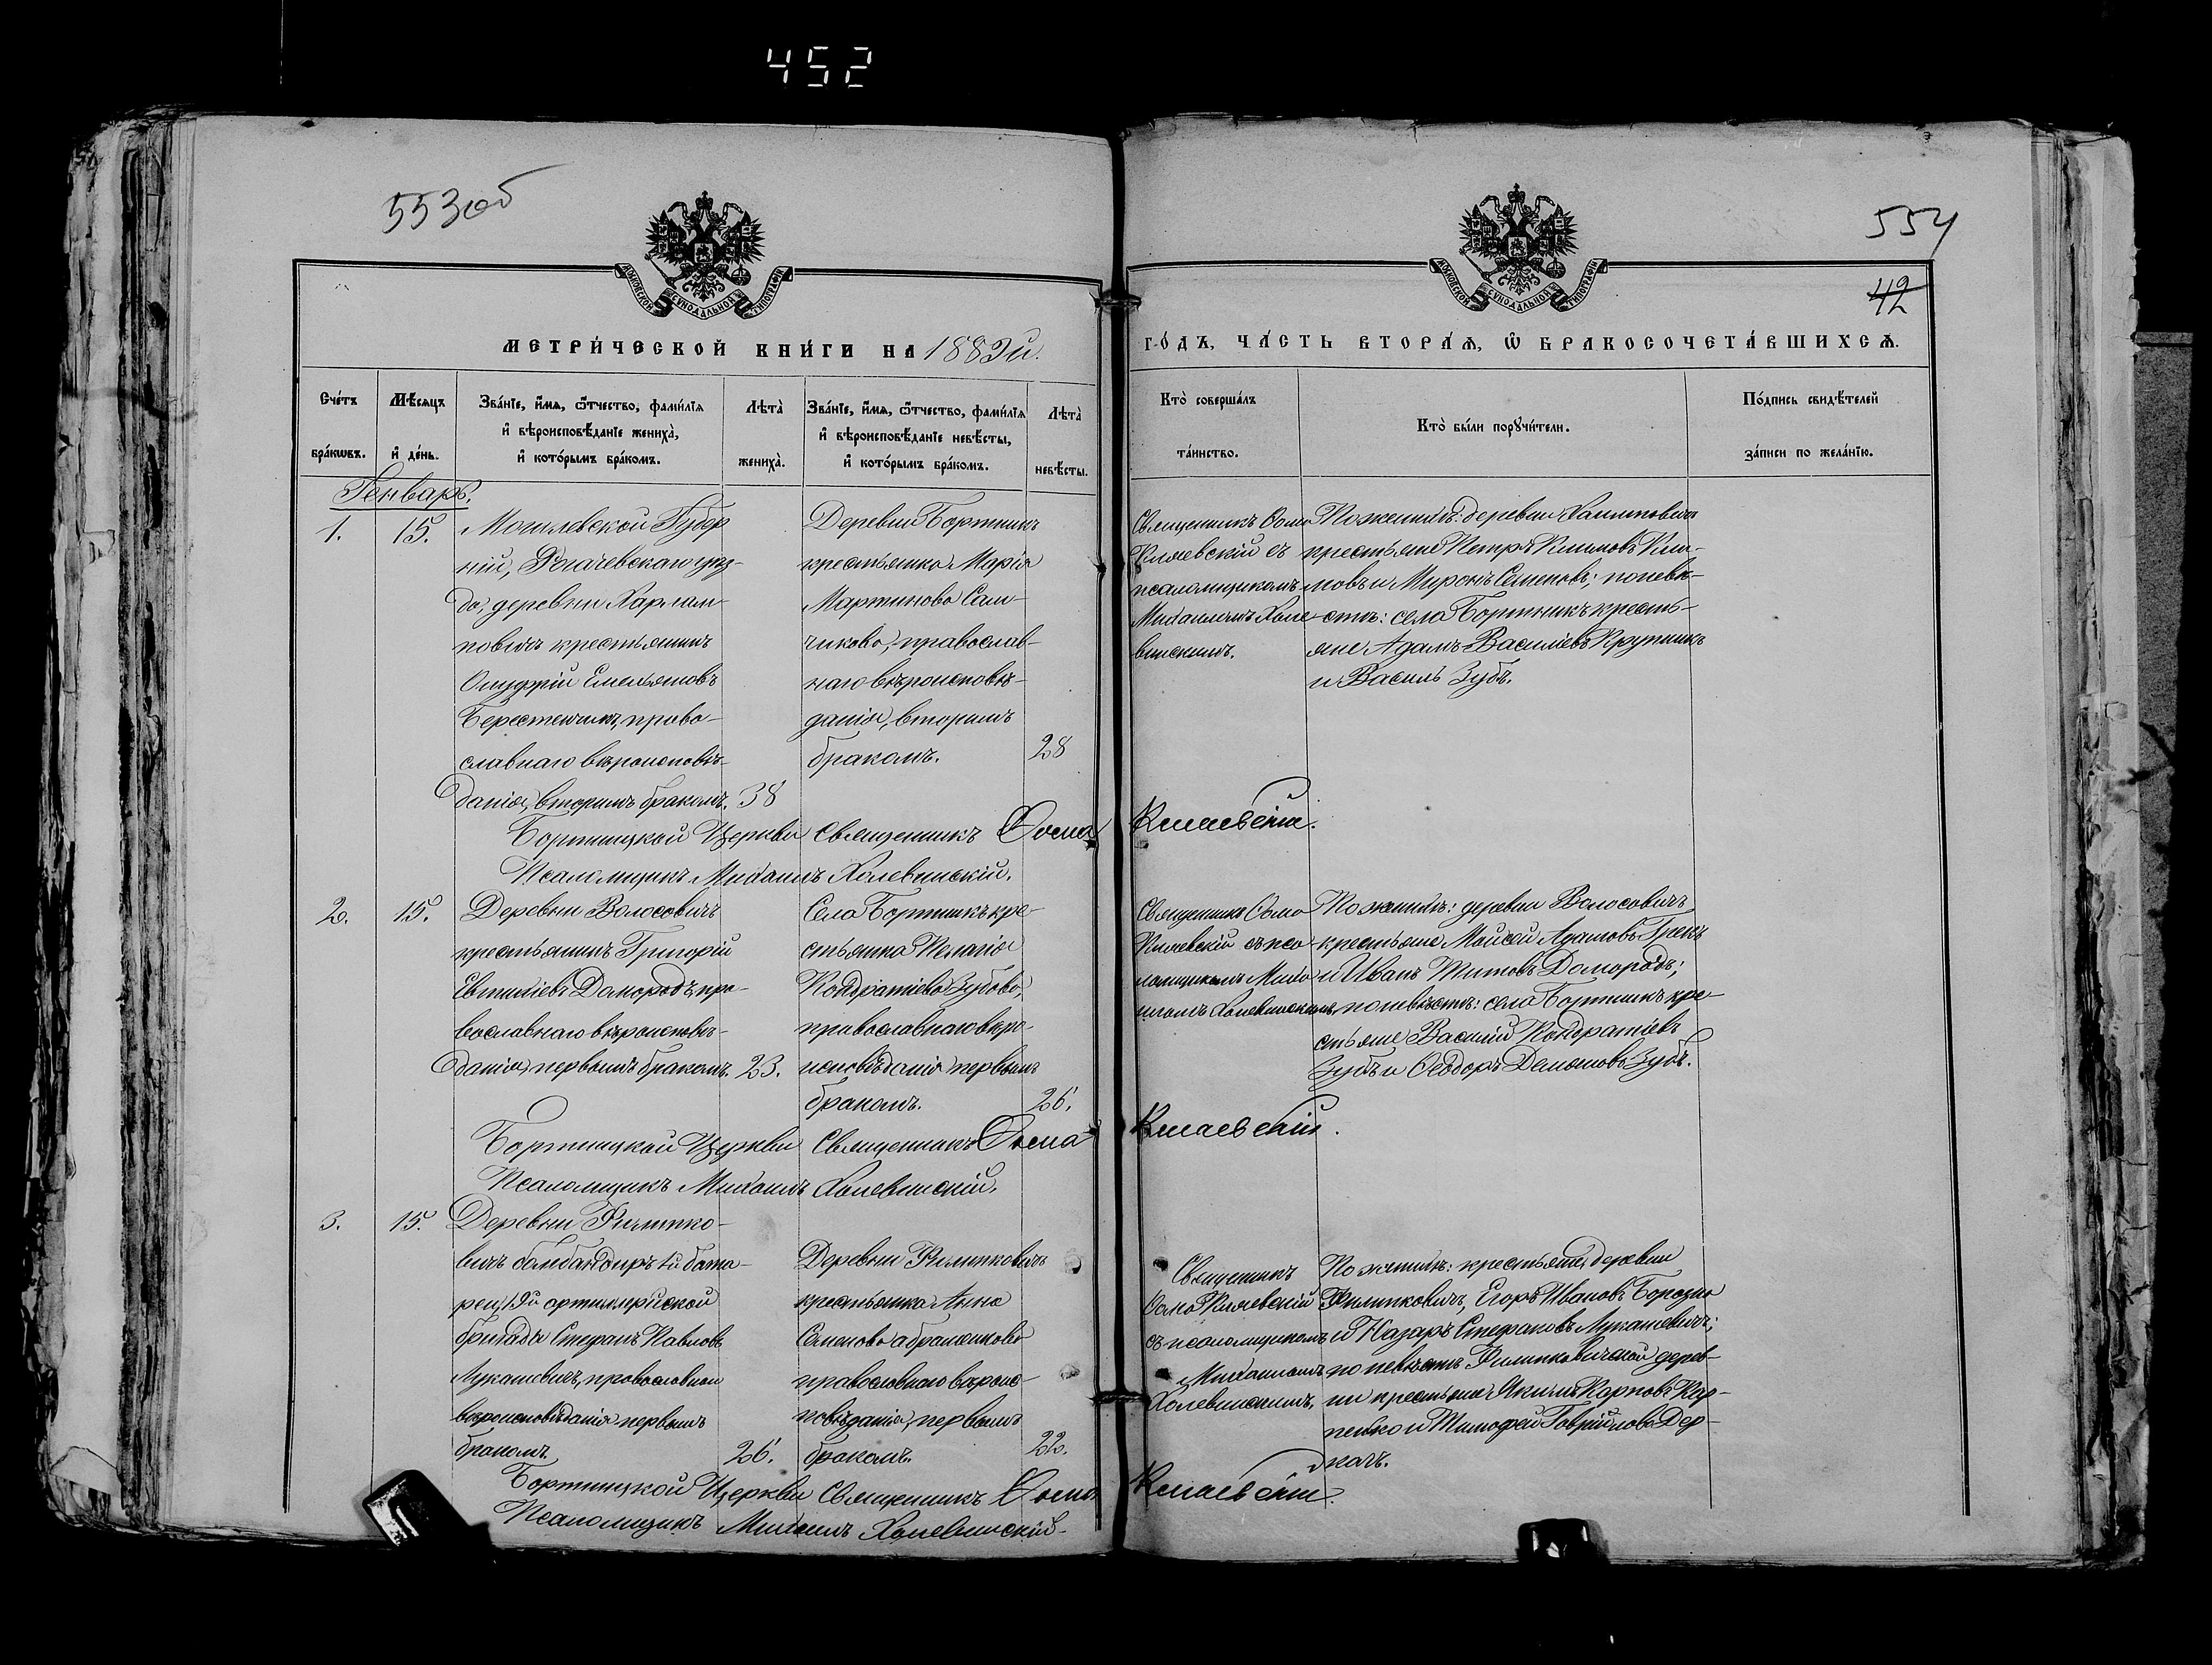 452
553об
554
42
МОСКОВСКОЙ СѴНОДАЛЬНОЙ ТИПОГРАФІИ
МОСКОВСКОЙ СѴНОДАЛЬНОЙ ТИПОГРАФІИ
МЕТРИ́ЧЕСКОЙ КНИ́ГИ НА 1883й.
ГО́ДЪ, ЧА́СТЬ ВТОРА́Ѧ, Ѡ БРАКОСОЧЕТА́ВШИХСѦ.
Сче́тъ
бра́кѡвъ.
Мѣ́сяцъ
и҆ де́нь.
Зва́нїе, и҆́мѧ, ѻ҆́тчество, фамѝлїѧ
и҆ вѣроисповѣ́данїе жениха̀,
и҆ кото́рымъ бра́комъ.
Лѣта̀
жениха̀.
Зва́нїе, и҆́мѧ, ѻ҆́тчество, фамѝлїѧ
и҆ вѣроисповѣ́данїе невѣ́сты,
и҆ кото́рымъ бра́комъ.
Лѣта̀
невѣ́сты.
Кто̀ соверша́лъ
та́инство.
Кто̀ бы́ли порꙋчи́тели.
По́дпись свидѣ́телей
за́писи по жела́нїю.
Генварь.
1.
15.
Могилевской Губер
ніи, Рогачевскаго уѣз-
да, деревни Харлам-
повичъ крестьянинъ
Онуфрій Емельяновъ
Берестенчикъ, право-
славнаго вѣроисповѣ-
данія, вторымъ бракомъ.
38
Деревни Бортникъ
крестьянка Марія
Мартинова Сам-
чикова, православ-
наго вѣроисповѣ-
данія, вторымъ
бракомъ.
28
Священникъ Фома
Кляевскій съ
псаломщикомъ
Михаиломъ Холе
винскимъ.
По женихѣ: деревни
крестьяне Петръ Климовъ Кли-
мовъ и Миронъ Семеновъ; по невѣ-
стѣ: села Бортникъ кресть-
яне Адамъ Василіевъ Крупникъ
и Василь Зубъ.
Бортницкой Церкви Священникъ Фома Кляевскій.
Псаломщикъ Михаилъ Холевинскій.
2.
15.
Деревни Волосовичъ
крестьянинъ Григорій
Евтихіевъ Домородъ, пра-
вославнаго вѣроисповѣ-
данія, первымъ бракомъ.
23.
Села Бортникъ кре-
стьянка Пелагія
Кондратіева Зубова,
православнаго вѣро-
исповѣданія первымъ
бракомъ.
26.
Священникъ Фома
Кляевскій съ пса
ломщикомъ Миха
иломъ Холевинскимъ
По женихѣ: деревни Волосовичъ
крестьяне Моисей Адамовъ Грекъ
и Иванъ Титовъ Домородъ;
по невѣстѣ: села Бортникъ кре-
стьяне Василій Кондратіевъ
Зубъ и Ѳеодоръ Зубъ.
Бортницкой Церкви Священникъ Фома Кляевскій.
Псаломщикъ Михаилъ Холевинскій.
3.
15.
Деревни Филипко-
вичъ бомбандиръ 1й бата-
реи, 19й артиллерійской
бригады Стефанъ Павловъ
Лукашевичъ, православнаго
вѣроисповѣданія первымъ
бракомъ.
26.
Деревни Филипковичъ
крестьянка Анна
Семенова Абраменкова
православнаго вѣроис-
повѣданія, первымъ
бракомъ.
22.
Священникъ
Фома Кляевскій
съ псаломщикомъ
Михаиломъ
Холевинскимъ.
По женихѣ: крестьяне, деревни
Филипковичъ, Егоръ Ивановъ Борозна
и Назаръ Стефановъ Лукашевичъ;
по невѣстѣ Филипковичской дерев-
ни крестьяне Якимъ Карповъ Кар-
пенко и Тимофей Гавріиловъ Дер-
качъ.
Бортницкой Церкви Священникъ Фома Кляевскій.
Псаломщикъ Михаилъ Холевинскій.